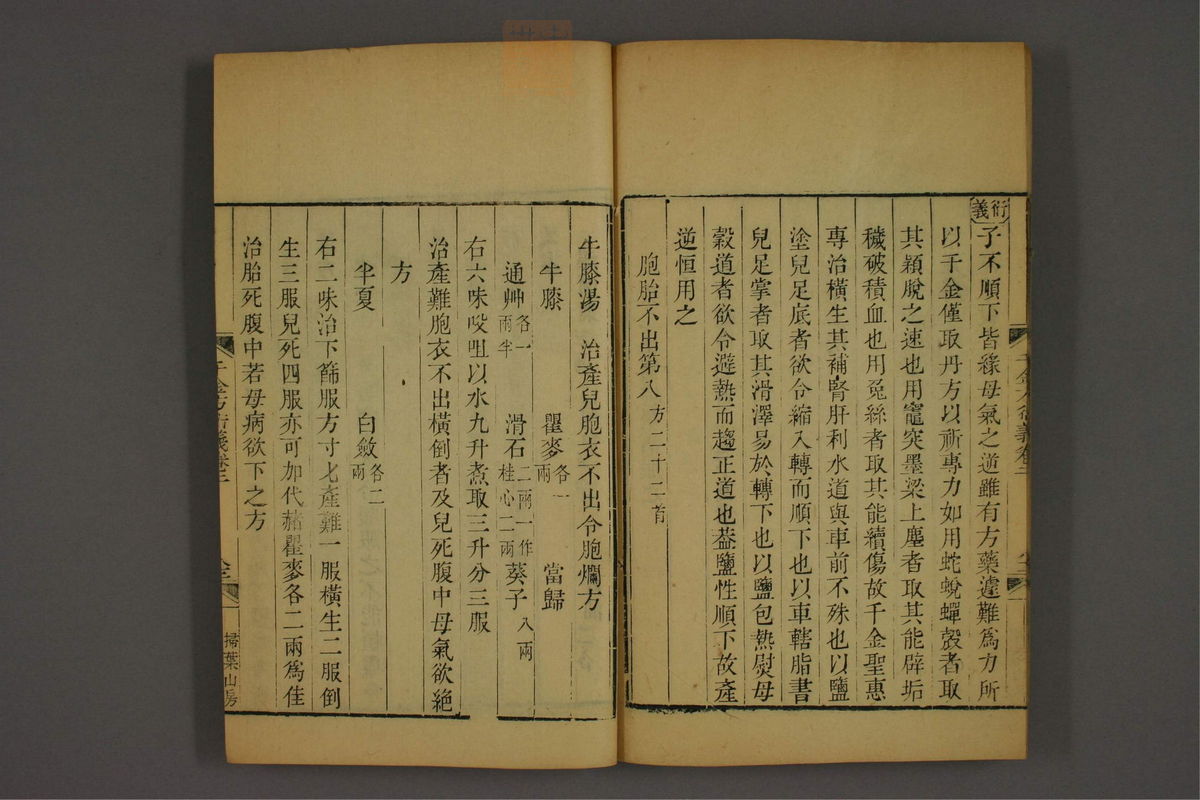 衍義
子不順下皆緣母氣之逆雖有方藥遽難爲力所
以千金僅取丹方以祈專力如用蛇蛻蟬殼者取
其穎脫之速也用竈突墨梁上塵者取其能辟垢
穢破積血也用兔絲者取其能續傷故千金聖惠
專治橫生其補腎肝利水道與車前不殊也以鹽
塗兒足底者欲令縮入轉而順下也以車轄脂書
兒足掌者取其滑澤易於轉下也以鹽包熱熨母
穀道者欲令避熱而趨正道也葢鹽性順下故產
逆恒用之
胞胎不出第八 方二十二首
牛膝湯 治產兒胞衣不出令胞爛方
牛膝 瞿麥各一兩 當歸
通艸各一兩半 滑石二兩一作桂心二兩 葵子八兩
右六味㕮咀以水九升煮取三升分三服
治產難胞衣不出橫倒者及兒死腹中母氣欲絕
方
半夏 白斂各二兩
右二味治下篩服方寸匕產難一服橫生二服倒
生三服兒死四服亦可加代赭瞿麥各二兩爲佳
治胎死腹中若母病欲下之方
千金方衍義卷二
掃葉山房